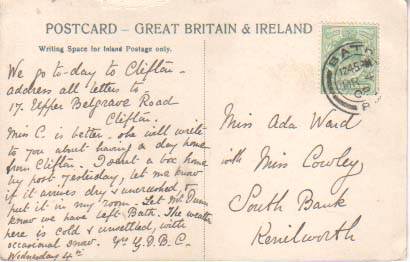 POSTCARD – GREAT BRITAIN & IRELAND
Writing Space for Inland Postage only.
We go to-day to Clifton -
address all letters to
17. Upper Belgrave Road
Clifton.
Miss C. is better - she will write
to you about having a day home
from Clifton. I sent a box home
by post yesterday, let me know
if it arrives dry & uncrushed, &
put it in my room. Let Mr Dunn
know we have left Bath. The weather
here is cold & unsettled, with
occasional snow. Yrs G.D.B.C.
Wednesday 4th
BATH
12.45 PM
Miss Ada Ward
with Miss Cowley
South Bank
Kenilworth